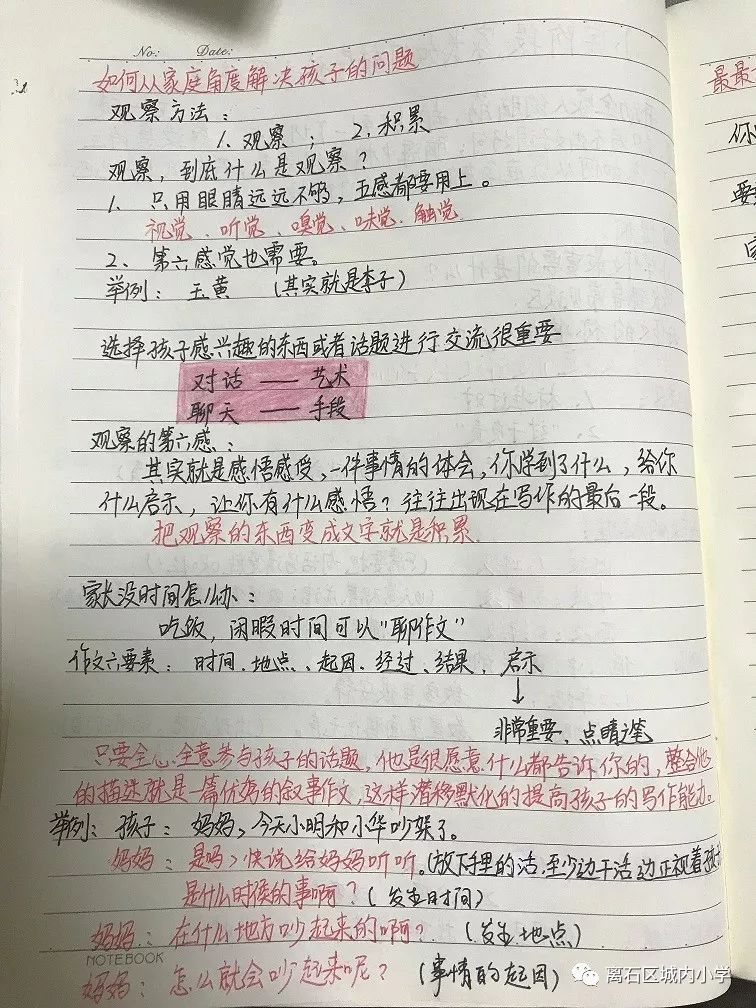 No: Date:
如何从家庭角度解决孩子的问题
观察方法：
1. 观察； 2. 积累
观察，到底什么是观察？
1、只用眼睛远远不够，五感都要用上。
视觉、听觉、嗅觉、味觉、触觉
2、第六感觉也需要。
举例：玉黄 （其实就是李子）
选择孩子感兴趣的东西或者话题进行交流很重要
对话 —— 艺术
聊天 —— 手段
观察的第六感：
其实就是感悟感受，一件事情的体会，你学到了什么，给你
什么启示，让你有什么感悟？往往出现在写作的最后一段。
把观察的东西变成文字就是积累.
家长没时间怎么办：
吃饭，闲暇时间可以"聊作文"
作文六要素：时间、地点、起因、经过、结果、启示
↓
非常重要、点睛之笔
只要全心全意参与孩子的话题，他也是很愿意什么都告诉你的，整合他
的描述就是一篇优妈的叙事作文，这样潜移默化的提高孩子的写作能力。
举例：孩子：妈妈，今天小明和小华吵架了。
妈妈：是吗，快说给妈妈听听。（放下手里的活，至少边干活边正视着孩
是什么时侯的事啊？（发生时间）
妈妈：在什么地方吵起来的啊？（发生地点）
NOTEBOOK
妈妈：怎么就会吵起来呢？（事情的起因）
最最
你
要
离石区城内小学